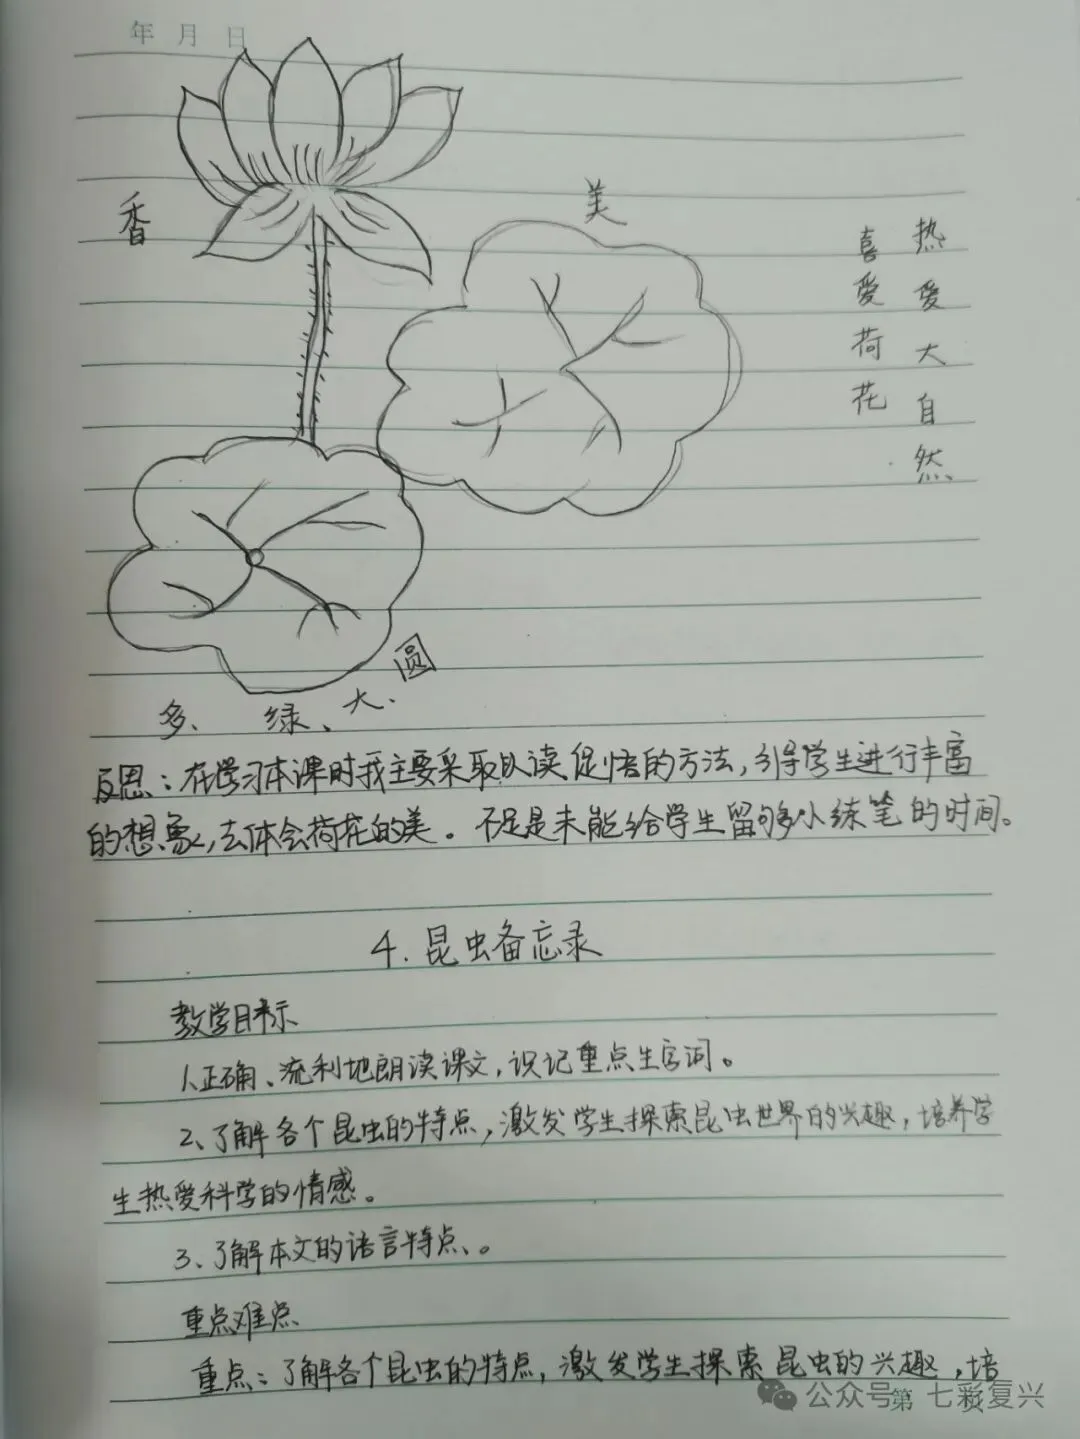 年 月 日
香
美
热爱大自然
喜爱荷花
圆
多、绿、大、
反思：在学习本课时我主要采取以读促悟的方法，引导学生进行丰富
的想象，去体会荷花的美。不足是未能给学生留够多小练笔的时间。
4.昆虫备忘录
教学目标
1.正确、流利地朗读课文，识记重点生字词。
2、了解各个昆虫的特点，激发学生探索昆虫世界的兴趣，培养学
生热爱科学的情感。
3、了解本文的语言特点、。
重点难点
重点：了解各个昆虫的特点，激发学生探索昆虫的兴趣，培
公众号 七彩复兴
第 页